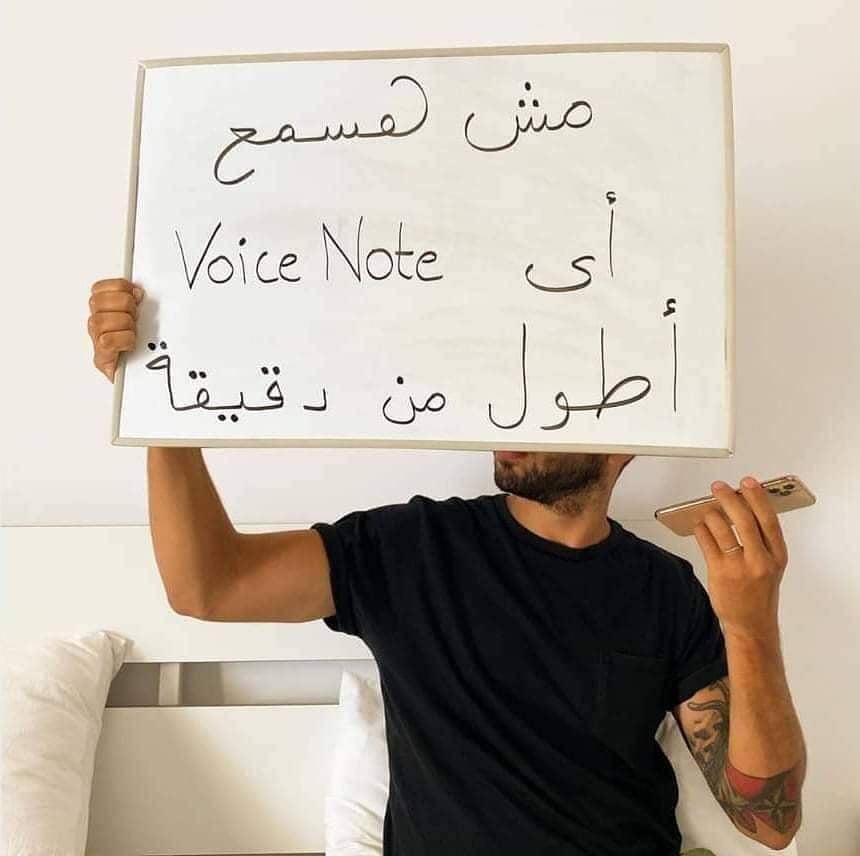 مش هسمع
أى Voice Note
أطول من دقيقة